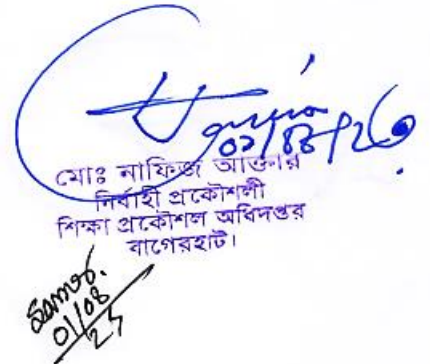 ০১/০৮/২৩
মোঃ নাফিজ আক্তার
নির্বাহী প্রকৌশলী
শিক্ষা প্রকৌশল অধিদপ্তর
বাগেরহাট।
01/08/23